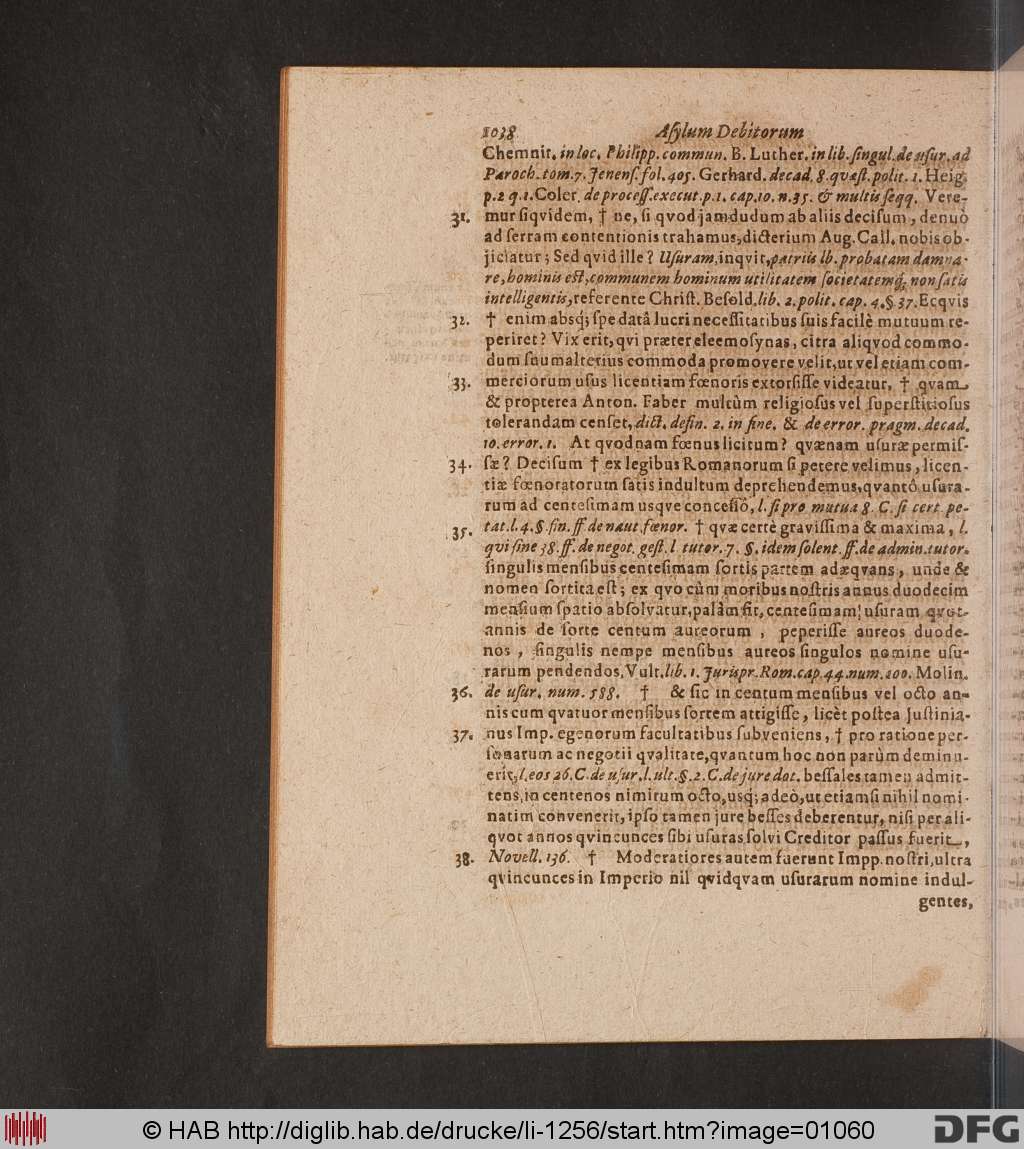 1038 Aſylum Debitorum
Chemnit. in loc. Philipp. commun. B. Luther. in lib. ſingul. de uſur. ad
Paroch. tom. 7. Jenenſ. fol. 405. Gerhard. decad. 8. qvæſt. polit. 1. Heig.
p. 2 q. 1. Coler. de proceſſ. execut. p. 1. cap. 10. n. 35. & multis ſeqq. Vere-
31. mur ſiqvidem, † ne, ſi qvod jamdudum ab aliis deciſum, denuò
ad ſerram contentionis trahamus, dicterium Aug. Call. nobis ob-
jiciatur; Sed qvid ille? Uſuram, inqvit, patriis lb. probatam damna-
re, hominis eſt, communem hominum utilitatem ſocietatemq; non ſatis
intelligentis, referente Chriſt. Beſold. lib. 2. polit. cap. 4. §. 37. Ecqvis
32. † enim absq; ſpe datâ lucri neceſſitatibus ſuis facilè mutuum re-
periret? Vix erit, qvi præter eleemoſynas, citra aliqvod commo-
dum ſuum alterius commoda promovere velit, ut vel etiam com-
33. merciorum uſus licentiam fœnoris extorſiſſe videatur, † qvam
& propterea Anton. Faber multùm religioſus vel ſuperſtitioſus
tolerandam cenſet, dict. defin. 2. in fine. & de error. pragm. decad.
10. error. 1. At qvodnam fœnus licitum? qvænam uſuræ permiſ-
34. ſæ? Deciſum † ex legibus Romanorum ſi petere velimus, licen-
tiæ fœnoratorum ſatis indultum deprehendemus, qvantô uſura-
rum ad centeſimam usqve conceſſô, l. ſi pro mutua 8. C. ſi cert. pe-
35. tat. l. 4. §. fin. ff. de naut. fœnor. † qvæ certè graviſſima & maxima, l.
qui ſine 38. ff. de negot. geſt. l. tutor. 7. §. idem ſolent. ff. de admin. tutor.
ſingulis menſibus centeſimam ſortis partem adæqvans, unde &
nomen ſortita eſt; ex qvo cùm moribus noſtris annus duodecim
menſium ſpatio abſolvatur, palàm fit, centeſimam uſuram qvot-
annis de ſorte centum aureorum, peperiſſe aureos duode-
nos, ſingulis nempe menſibus aureos ſingulos nomine uſu-
rarum pendendos, Vult. lib. 1. Jurispr. Rom. cap. 44. num. 100. Molin.
36. de uſur. num. 588. † & ſic in centum menſibus vel octo an-
nis cum qvatuor menſibus ſortem attigiſſe, licèt poſtea Juſtinia-
37. nus Imp. egenorum facultatibus ſubveniens, † pro ratione per-
ſonarum ac negotii qvalitate, qvantum hoc non parùm deminu-
erit, l. eos 26. C. de uſur. l. ult. §. 2. C. de jure dot. beſſales tamen admit-
tens, in centenos nimirum octo, usq; adeò, ut etiamſi nihil nomi-
natim convenerit, ipſo tamen jure beſſes deberentur, niſi per ali-
qvot annos qvincunces ſibi uſuras ſolvi Creditor paſſus fuerit,
38. Novell. 136. † Moderatiores autem fuerunt Impp. noſtri, ultra
qvincunces in Imperio nil qvidqvam uſurarum nomine indul-
gentes,
© HAB http://diglib.hab.de/drucke/li-1256/start.htm?image=01060
DFG